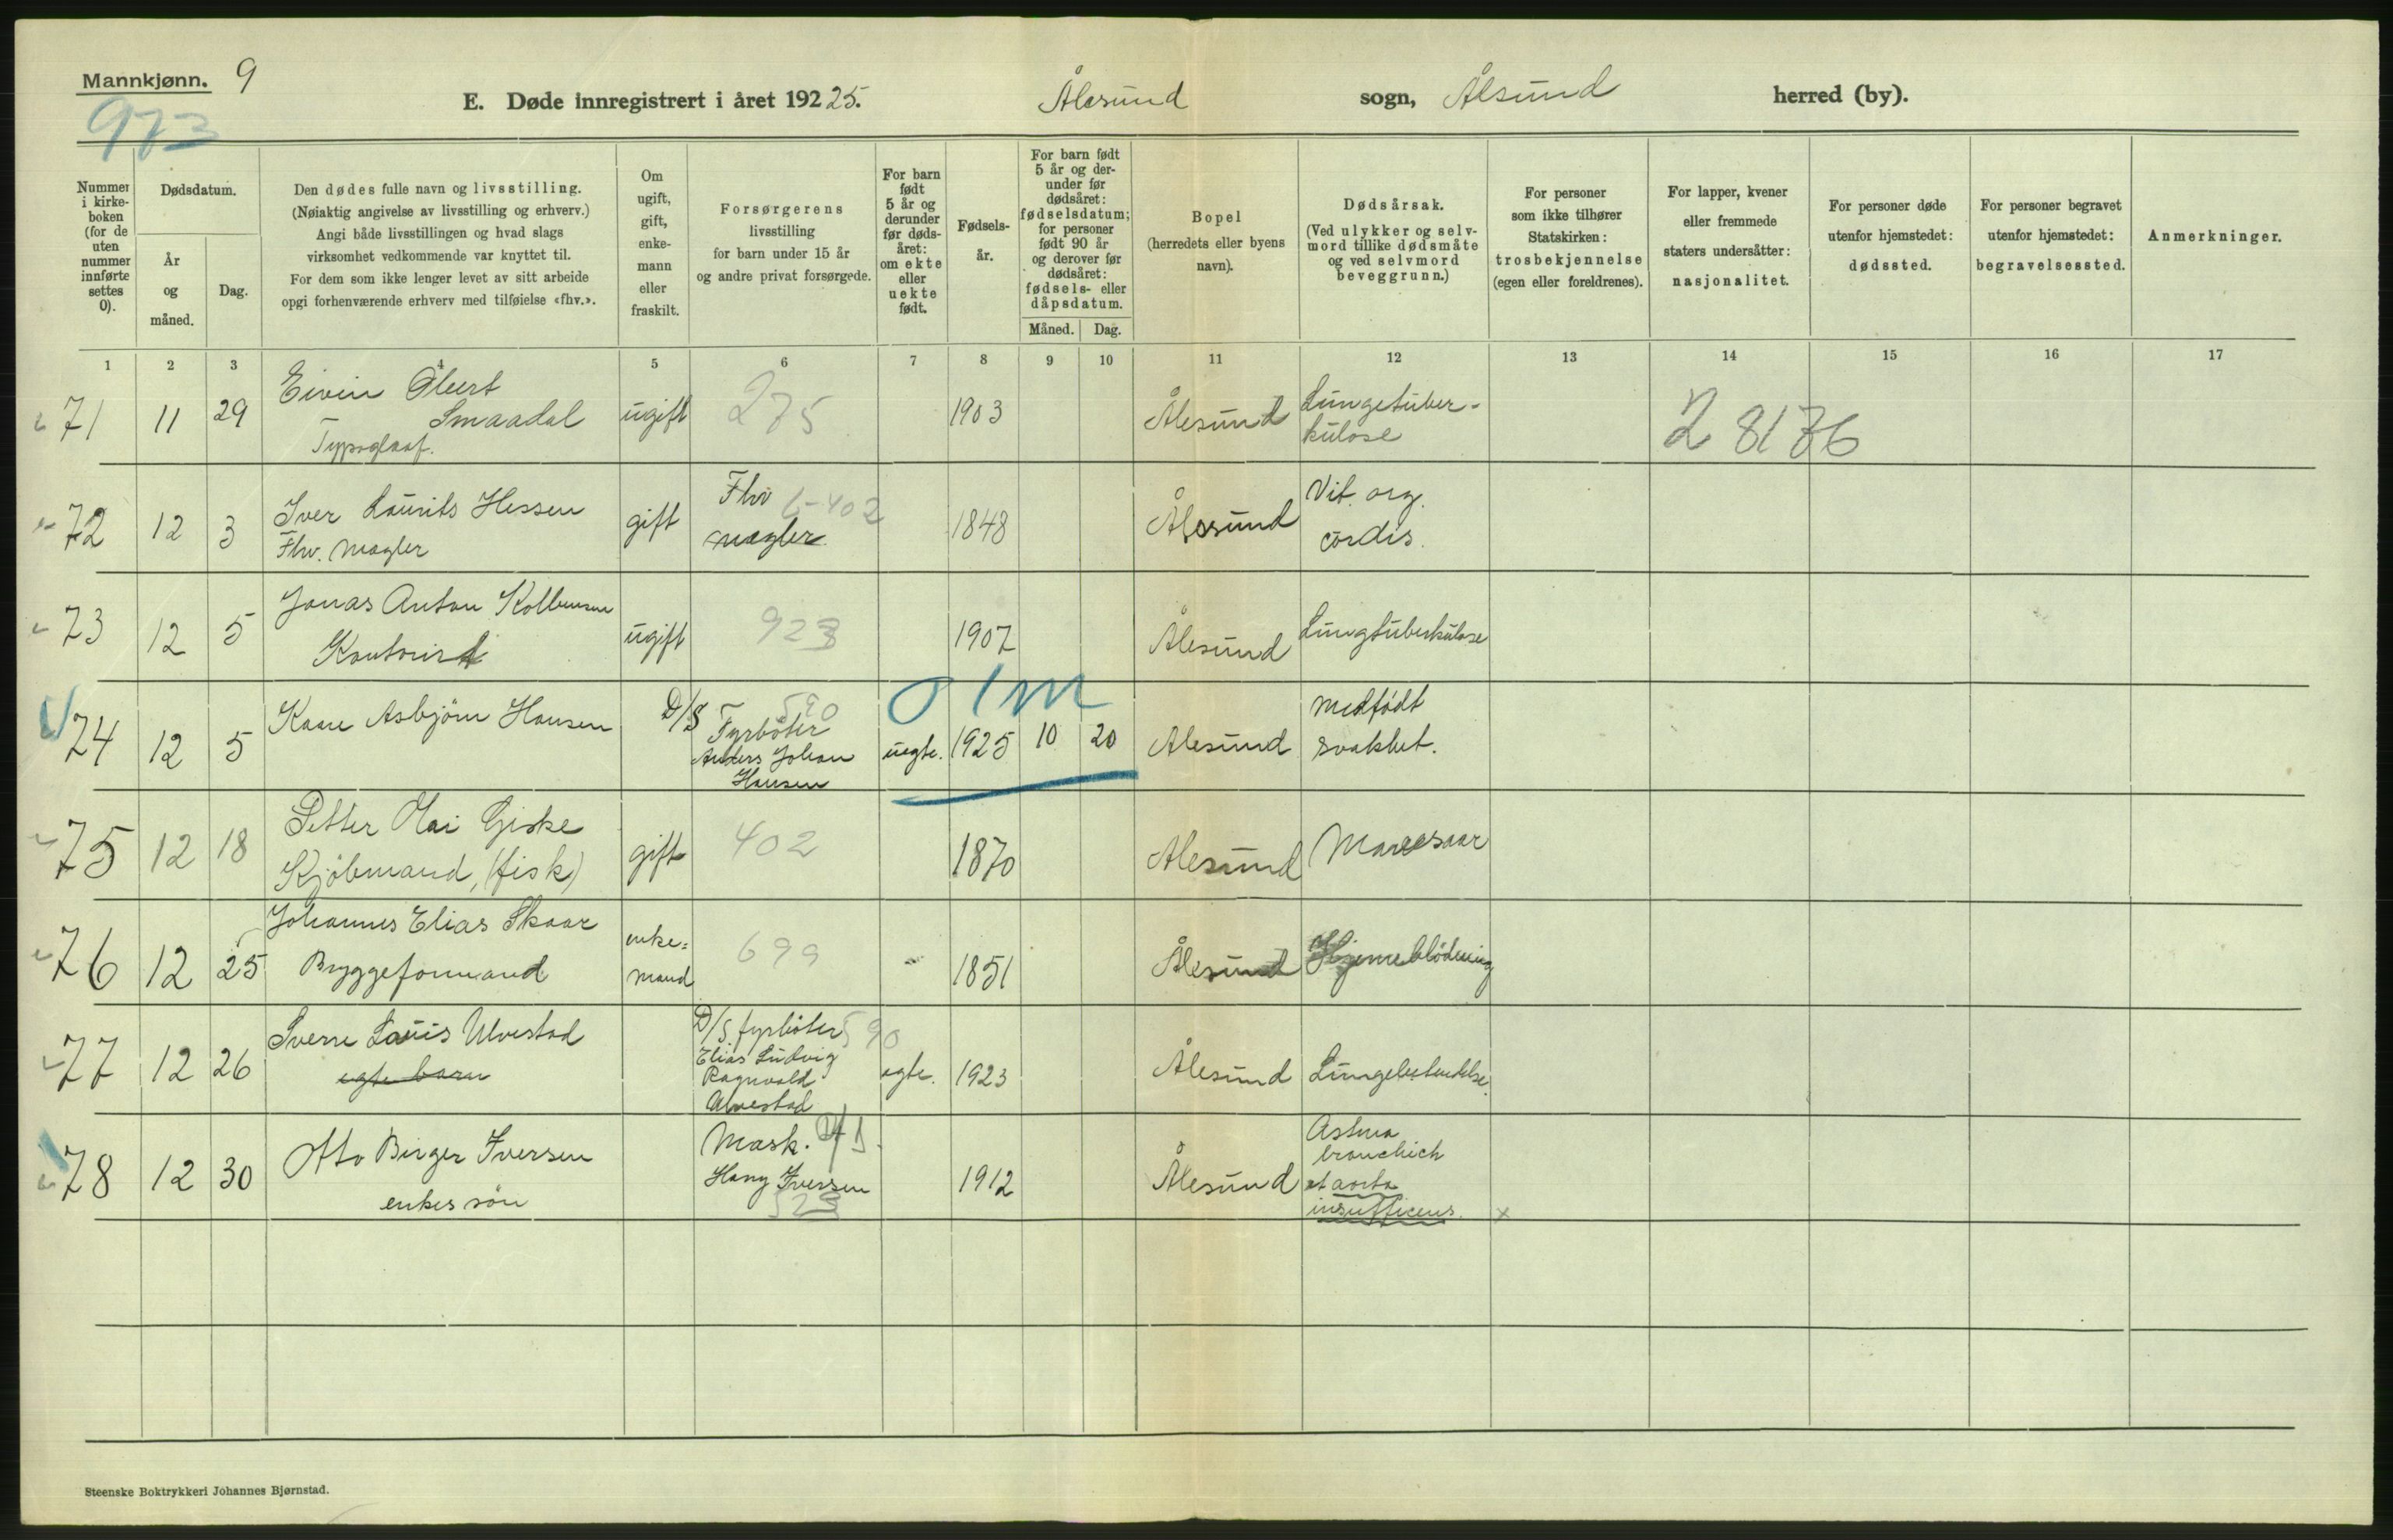 Mannkjønn. 9
973
E. Døde innregistrert i året 192 25. Ålesund sogn, Ålsund herred (by).
Nummer i kirke-boken (for de uten nummer innførte settes 0).
Dødsdatum.
År og måned.
Dag.
Den dødes fulle navn og livsstilling.
(Nøiaktig angivelse av livsstilling og erhverv.)
Angi både livsstillingen og hvad slags
virksomhet vedkommende var knyttet til.
For dem som ikke lenger levet av sitt arbeide
opgi forhenværende erhverv med tilføielse «fhv.».
Om ugift, gift, enke-mann eller fraskilt.
Forsørgerens
livsstilling
for barn under 15 år
og andre privat forsørgede.
For barn født 5 år og derunder før døds-året: om ekte eller uekte født.
Fødsels-år.
For barn født 5 år og der-under før dødsåret: fødselsdatum; for personer født 90 år og derover før dødsåret: fødsels- eller dåpsdatum.
Måned. Dag.
Bopel
(herredets eller byens
navn).
Dødsårsak.
(Ved ulykker og selv-
mord tillike dødsmåte
og ved selvmord
beveggrunn.)
For personer
som ikke tilhører
Statskirken:
trosbekjennelse
(egen eller foreldrenes).
For lapper, kvener
eller fremmede
staters undersåtter:
nasjonalitet.
For personer døde
utenfor hjemstedet:
dødssted.
For personer begravet
utenfor hjemstedet:
begravelsessted.
Anmerkninger.
1 2 3 4 5 6 7 8 9 10 11 12 13 14 15 16 17
71 11 29 Eivin Olbert Smaadal
Typograf.
ugift 275 1903 Ålesund Lungetuber-
kulose
28176
72 12 3 Iver Laurits Hessen
Fhv. Mægler
gift Fhv 6-402
mægler. 1848 Ålesund Vit. org.
cordis.
73 12 5 Jonas Anton Kolbensen
Kontorist
ugift 923 1907 Ålesund Lungtuberkulose
01m
74 12 5 Kaare Asbjörn Hansen
D/S 590
Fyrböter
Anders Johan
Hansen
uegte. 1925 10 20 Alesund Medfödt
svakhet.
75 12 18 Petter Olai Giske
Kjöbmand, (fisk)
gift 402 1870 Alesund Mavesaar
76 12 25 Johannes Elias Skaar
Bryggeformand
enke=
mand 699 1851 Ålesund Hjerneblödning
77 12 26 Sverre Louis Ulvestad
egte barn
D/S. fyrböter 590
Elias Ludvig
Ragnvald
Ulvestad
egte. 1923 Ålesund Lungebetendelse.
78 12 30 Otto Birger Iversen
enkes sön
Mask.
Hany Iversen
523
1912 Ålesund Astma
bronchich
et aorta
insufficens. x
Steenske Boktrykkeri Johannes Bjørnstad.